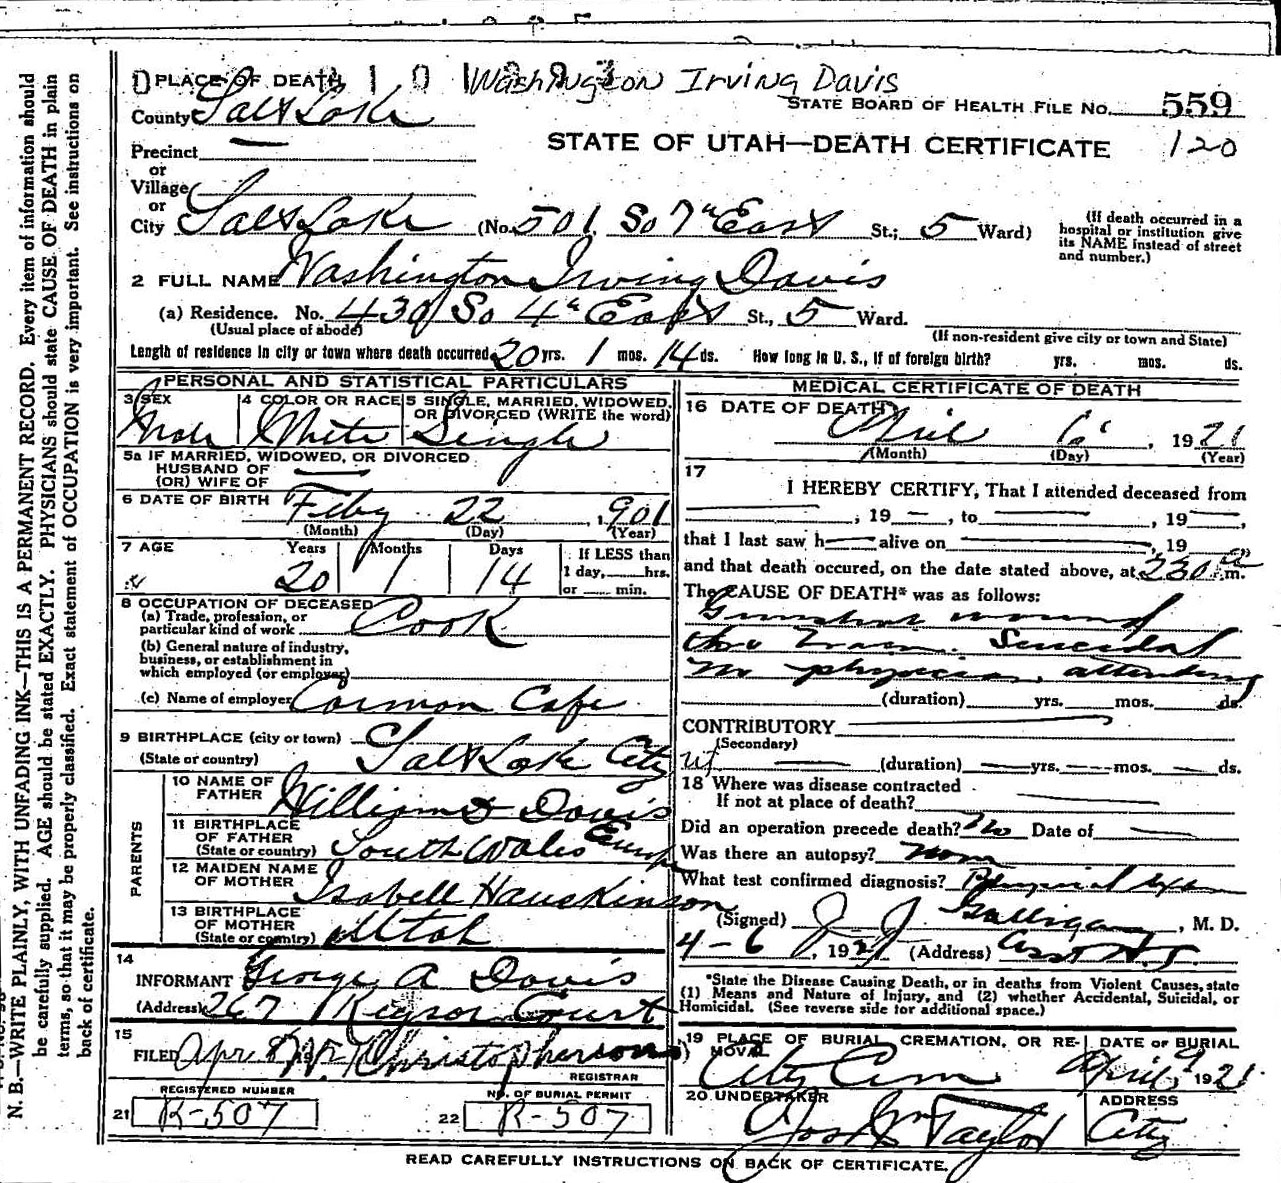 N. B.—WRITE PLAINLY, WITH UNFADING INK—THIS IS A PERMANENT RECORD. Every item of information should
be carefully supplied. AGE should be stated EXACTLY. PHYSICIANS should state CAUSE OF DEATH in plain
terms, so that it may be properly classified. Exact statement of OCCUPATION is very important. See instructions on
back of certificate.
PLACE OF DEATH Washington Irving Davis
County Salt Lake
STATE BOARD OF HEALTH FILE NO. 559
STATE OF UTAH—DEATH CERTIFICATE 120
Precinct
or
Village
or
City Salt Lake (No. 501 So 7th East St.; 5 Ward)
(If death occurred in a
hospital or institution give
its NAME instead of street
and number.)
2 FULL NAME Washington Irving Davis
(a) Residence. No. 430 So 4th East St., 5 Ward.
(Usual place of abode)
(If non-resident give city or town and State)
Length of residence in city or town where death occurred 20 yrs. 1 mos. 14 ds. How long in U. S., if of foreign birth? yrs. mos. ds.
PERSONAL AND STATISTICAL PARTICULARS
3 SEX 4 COLOR OR RACE 5 SINGLE, MARRIED, WIDOWED,
OR DIVORCED (WRITE the word)
Male White Single
5a IF MARRIED, WIDOWED, OR DIVORCED
HUSBAND OF
(OR) WIFE OF
6 DATE OF BIRTH Feby 22, 1901
(Month) (Day) (Year)
7 AGE Years Months Days If LESS than
1 day,......hrs.
or ...... min.
20 1 14
8 OCCUPATION OF DECEASED
(a) Trade, profession, or
particular kind of work Cook
(b) General nature of industry,
business, or establishment in
which employed (or employer)
(c) Name of employer Cafe
9 BIRTHPLACE (city or town)
(State or country) Salt Lake City
PARENTS
10 NAME OF
FATHER William Davis
11 BIRTHPLACE
OF FATHER
(State or country) South Wales Europe
12 MAIDEN NAME
OF MOTHER Isabell Hauskinson
13 BIRTHPLACE
OF MOTHER
(State or country) Utah
14
INFORMANT George A Davis
(Address) 267 Keysor Court
15
FILED Apr 8 Christopherson
REGISTRAR
REGISTERED NUMBER
21 R-507
NO. OF BURIAL PERMIT
22 R-507
MEDICAL CERTIFICATE OF DEATH
16 DATE OF DEATH
April 6, 1921
(Month) (Day) (Year)
17
I HEREBY CERTIFY, That I attended deceased from
, 19 — , to , 19 ,
that I last saw h alive on , 19
and that death occured, on the date stated above, at 230 a m.
The CAUSE OF DEATH* was as follows:
Gunshot wound
thro brain. Suicidal
no physician attending
(duration) yrs. mos. ds.
CONTRIBUTORY
(Secondary)
(duration) yrs. mos. ds.
18 Where was disease contracted
If not at place of death?
Did an operation precede death? No Date of
Was there an autopsy? None
What test confirmed diagnosis? Physical Exam
(Signed) J J Galligan, M. D.
4-6, 1921 (Address) Asst H.
*State the Disease Causing Death, or in deaths from Violent Causes, state
(1) Means and Nature of Injury, and (2) whether Accidental, Suicidal, or
Homicidal. (See reverse side for additional space.)
19 PLACE OF BURIAL, CREMATION, OR RE-
MOVAL
City Cem
DATE OF BURIAL
April 9 1921
20 UNDERTAKER
Jos Wm Taylor
ADDRESS
City
READ CAREFULLY INSTRUCTIONS ON BACK OF CERTIFICATE.